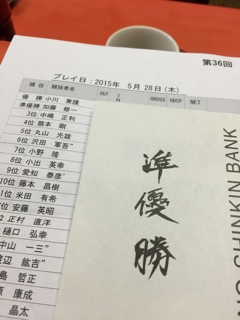 第36回
プレイ日：2015年 5月 28日(木)
順位 競技者名 OUT IN GROSS HDCP NET
優 勝 小川 兼護
準優勝 加藤 修一
3位 中嶋 正利
4位 磨本 剛
5位 丸山 光雄
6位 沢田 軍吾
7位 小野 隆
8位 小出 英幸
9位 愛知 泰彦
10位 藤本 昌樹
位 米田 有希
位 安藤 英昭
位 正村 直洋
樋口 弘幸
中山 一三
渡辺 紘吉
島 哲正
原 康成
晶太
準優勝
SHINKIN BANK